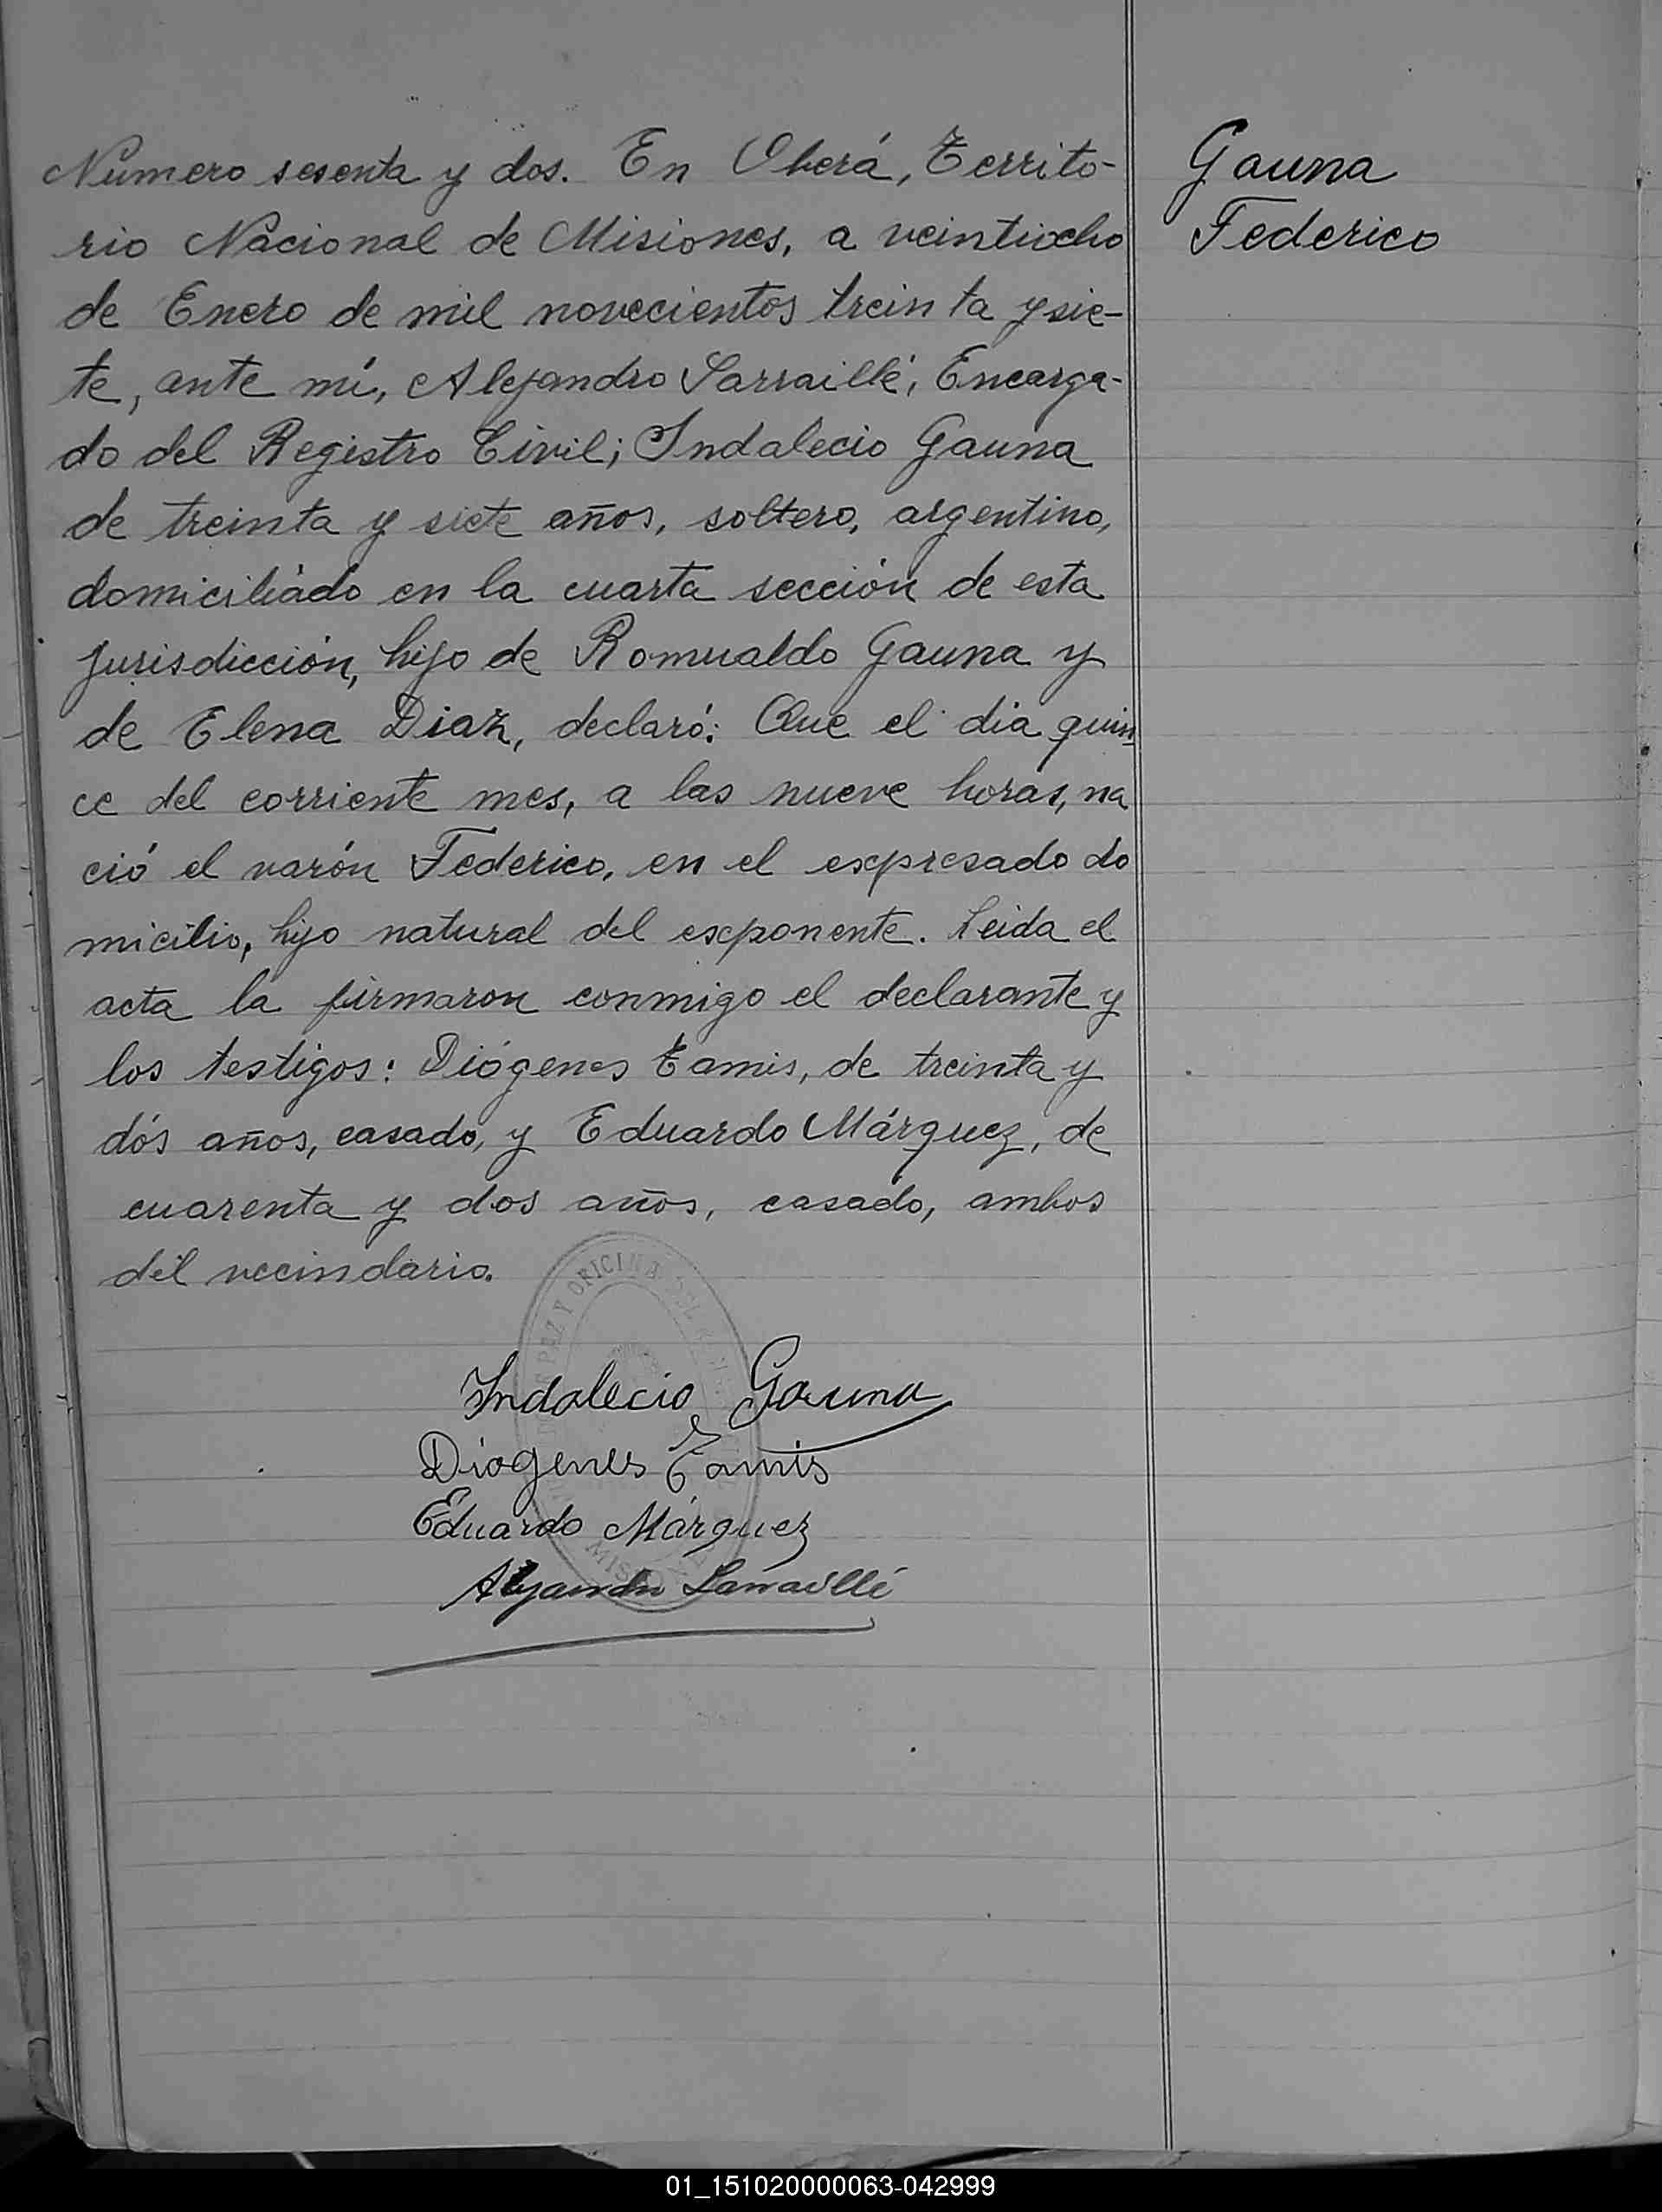 Número sesenta y dos. En Oberá, Territo-
rio Nacional de Misiones, a veintiocho
de Enero de mil novecientos treinta y sie-
te, ante mí, Alejandro Sarraillé, Encarga-
do del Registro Civil; Indalecio Gauna
de treinta y siete años, soltero, argentino,
domiciliado en la cuarta sección de esta
jurisdicción, hijo de Romualdo Gauna y
de Elena Diaz, declaró: Que el dia quin
ce del corriente mes, a las nueve horas, na
ció el varón Federico, en el expresado do
micilio, hijo natural del exponente. Leida el
acta la firmaron conmigo el declarante y
los testigos: Diógenes Tamis, de treinta y
dos años, casado, y Eduardo Márquez, de
cuarenta y dos años, casado, ambos
del vecindario.
Gauna
Federico
PAZ Y OFICINA DEL
Indalecio Gauna
Diogenes Tamis
Eduardo Márquez
Alejandro Sarraillé
01_151020000063-042999